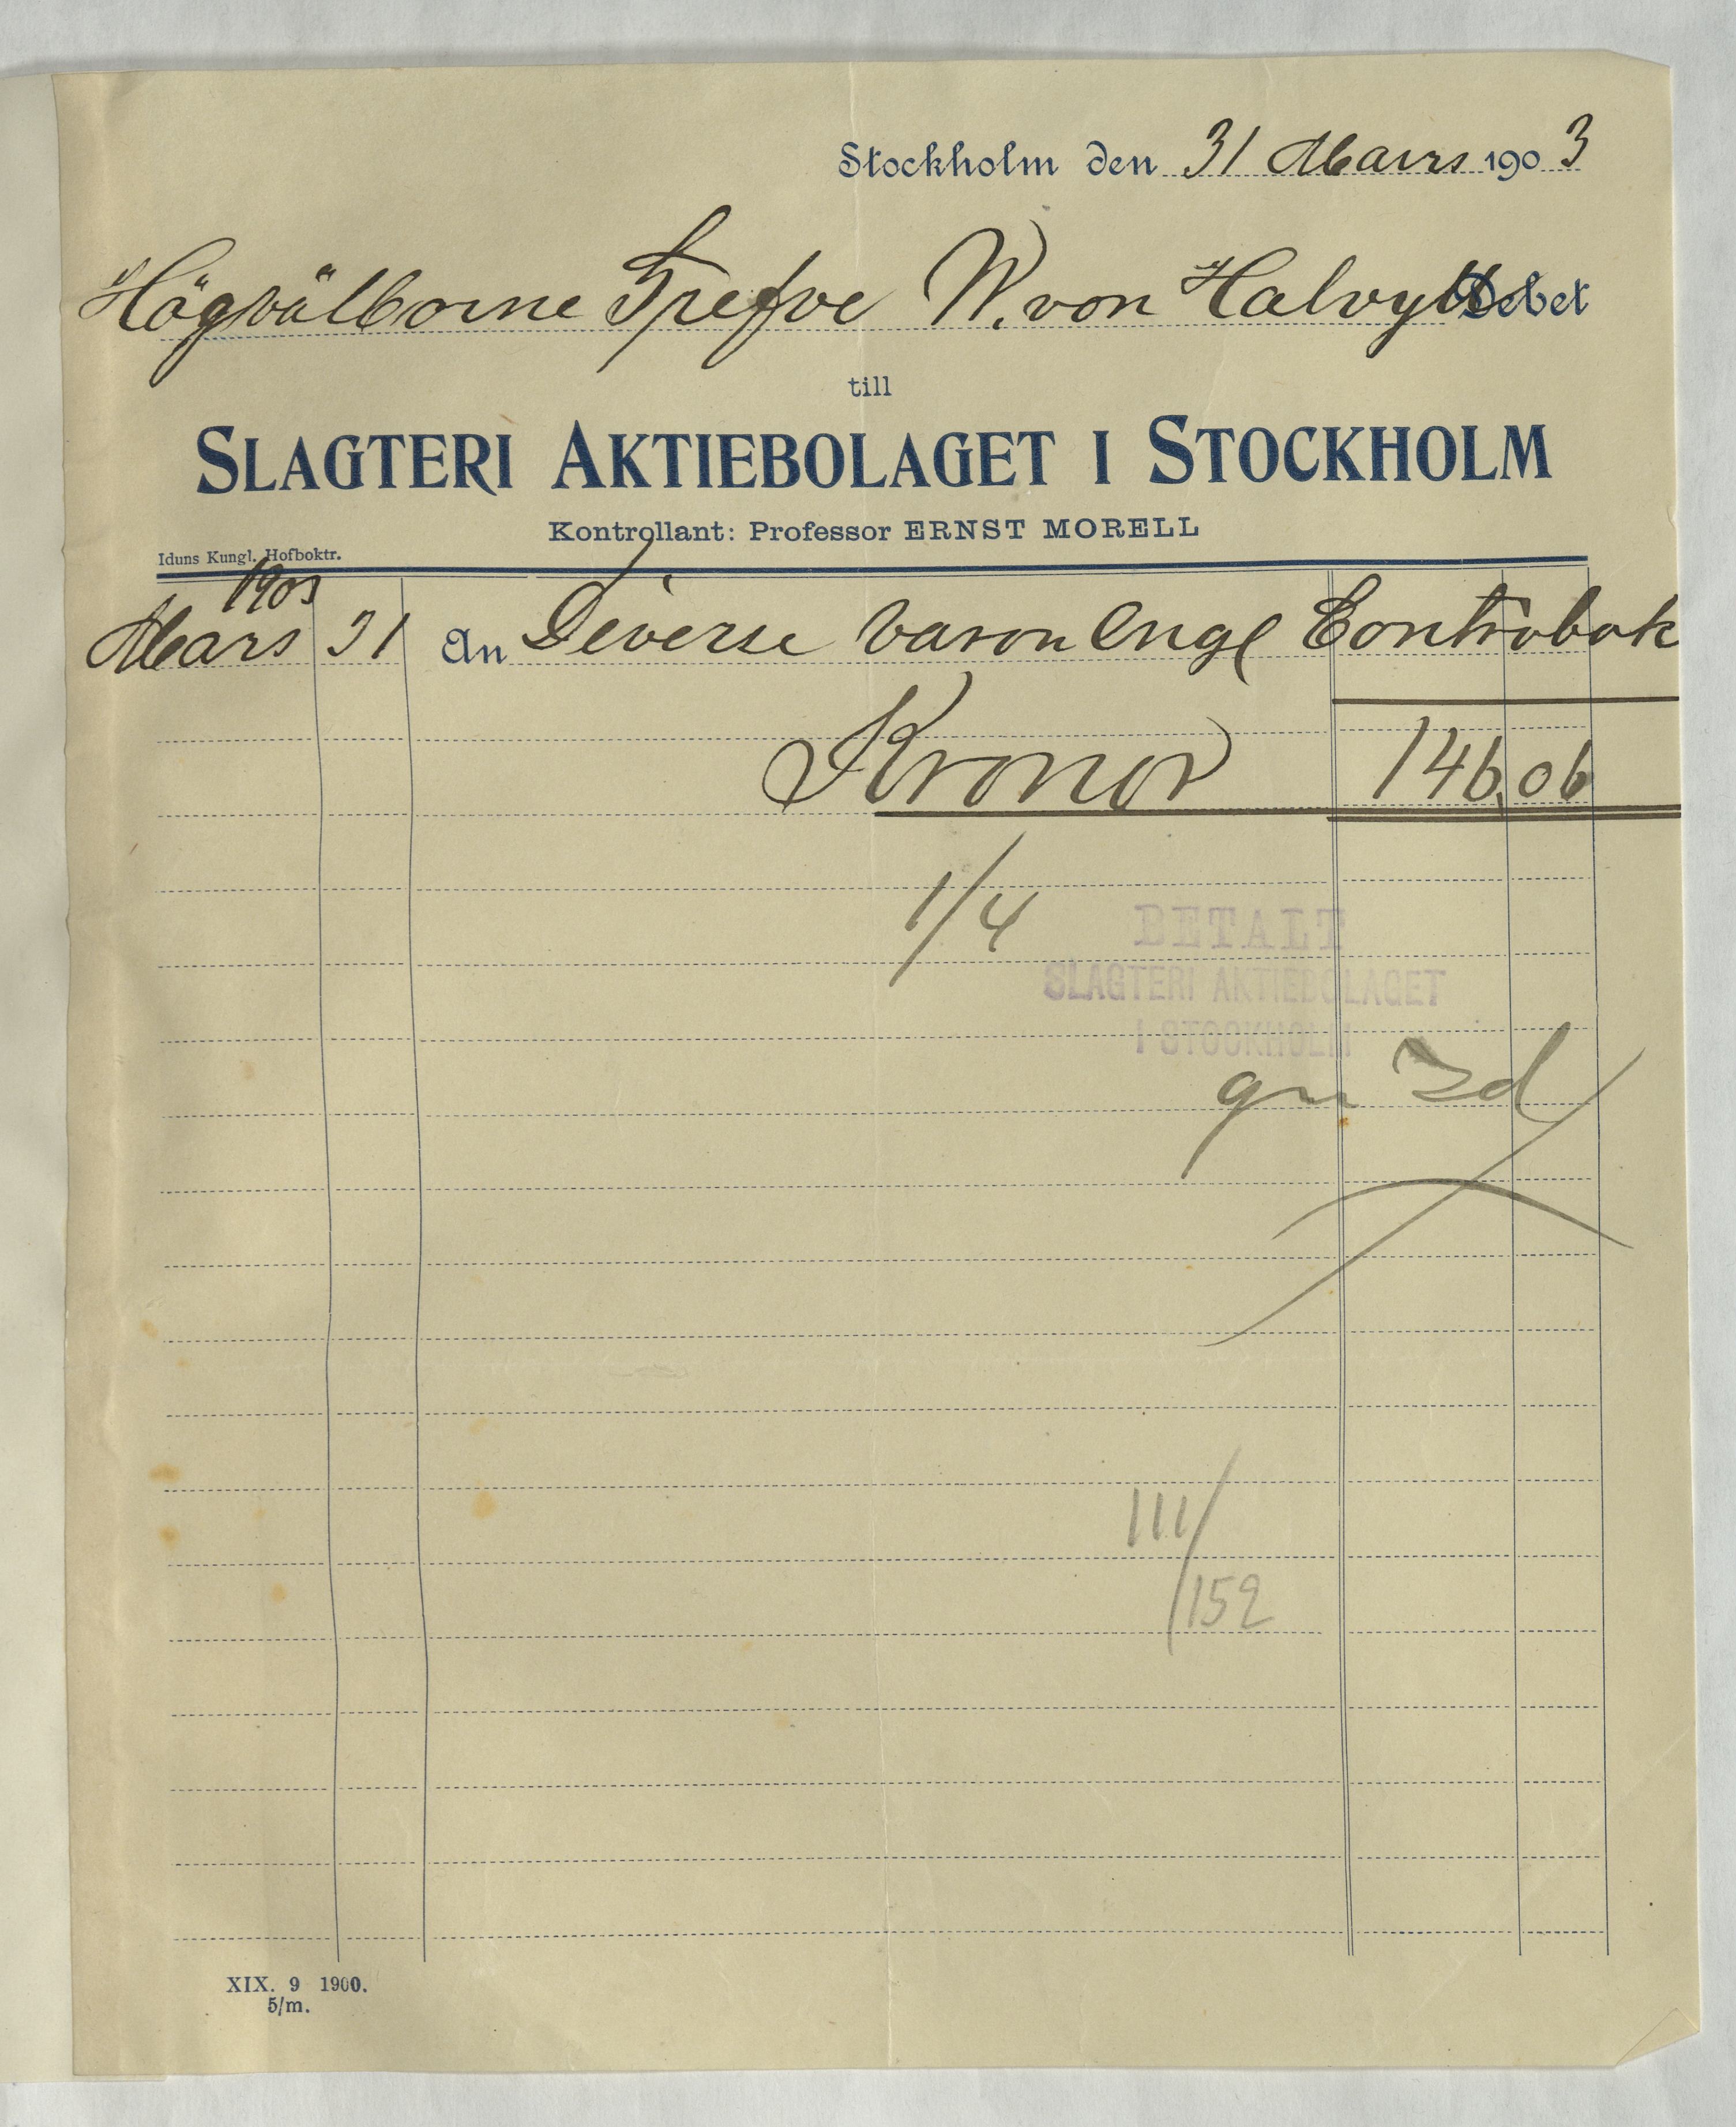 Stockholm den 31 Mars 1903
Högvälborne Grefve W. von Halvyll Debet
till
SLAGTERI AKTIEBOLAGET I STOCKHOLM
Kontrollant: Professor ERNST MORELL
Iduns Kungl. Hofboktr.
1903
Mars 31 An Diverse varor enl Contrabok
Kronor 146,06
1/4
BETALT
SLAGTERI AKTIEBOLAGET
I STOCKHOLM
111/152
XIX. 9 1900.
5/m.